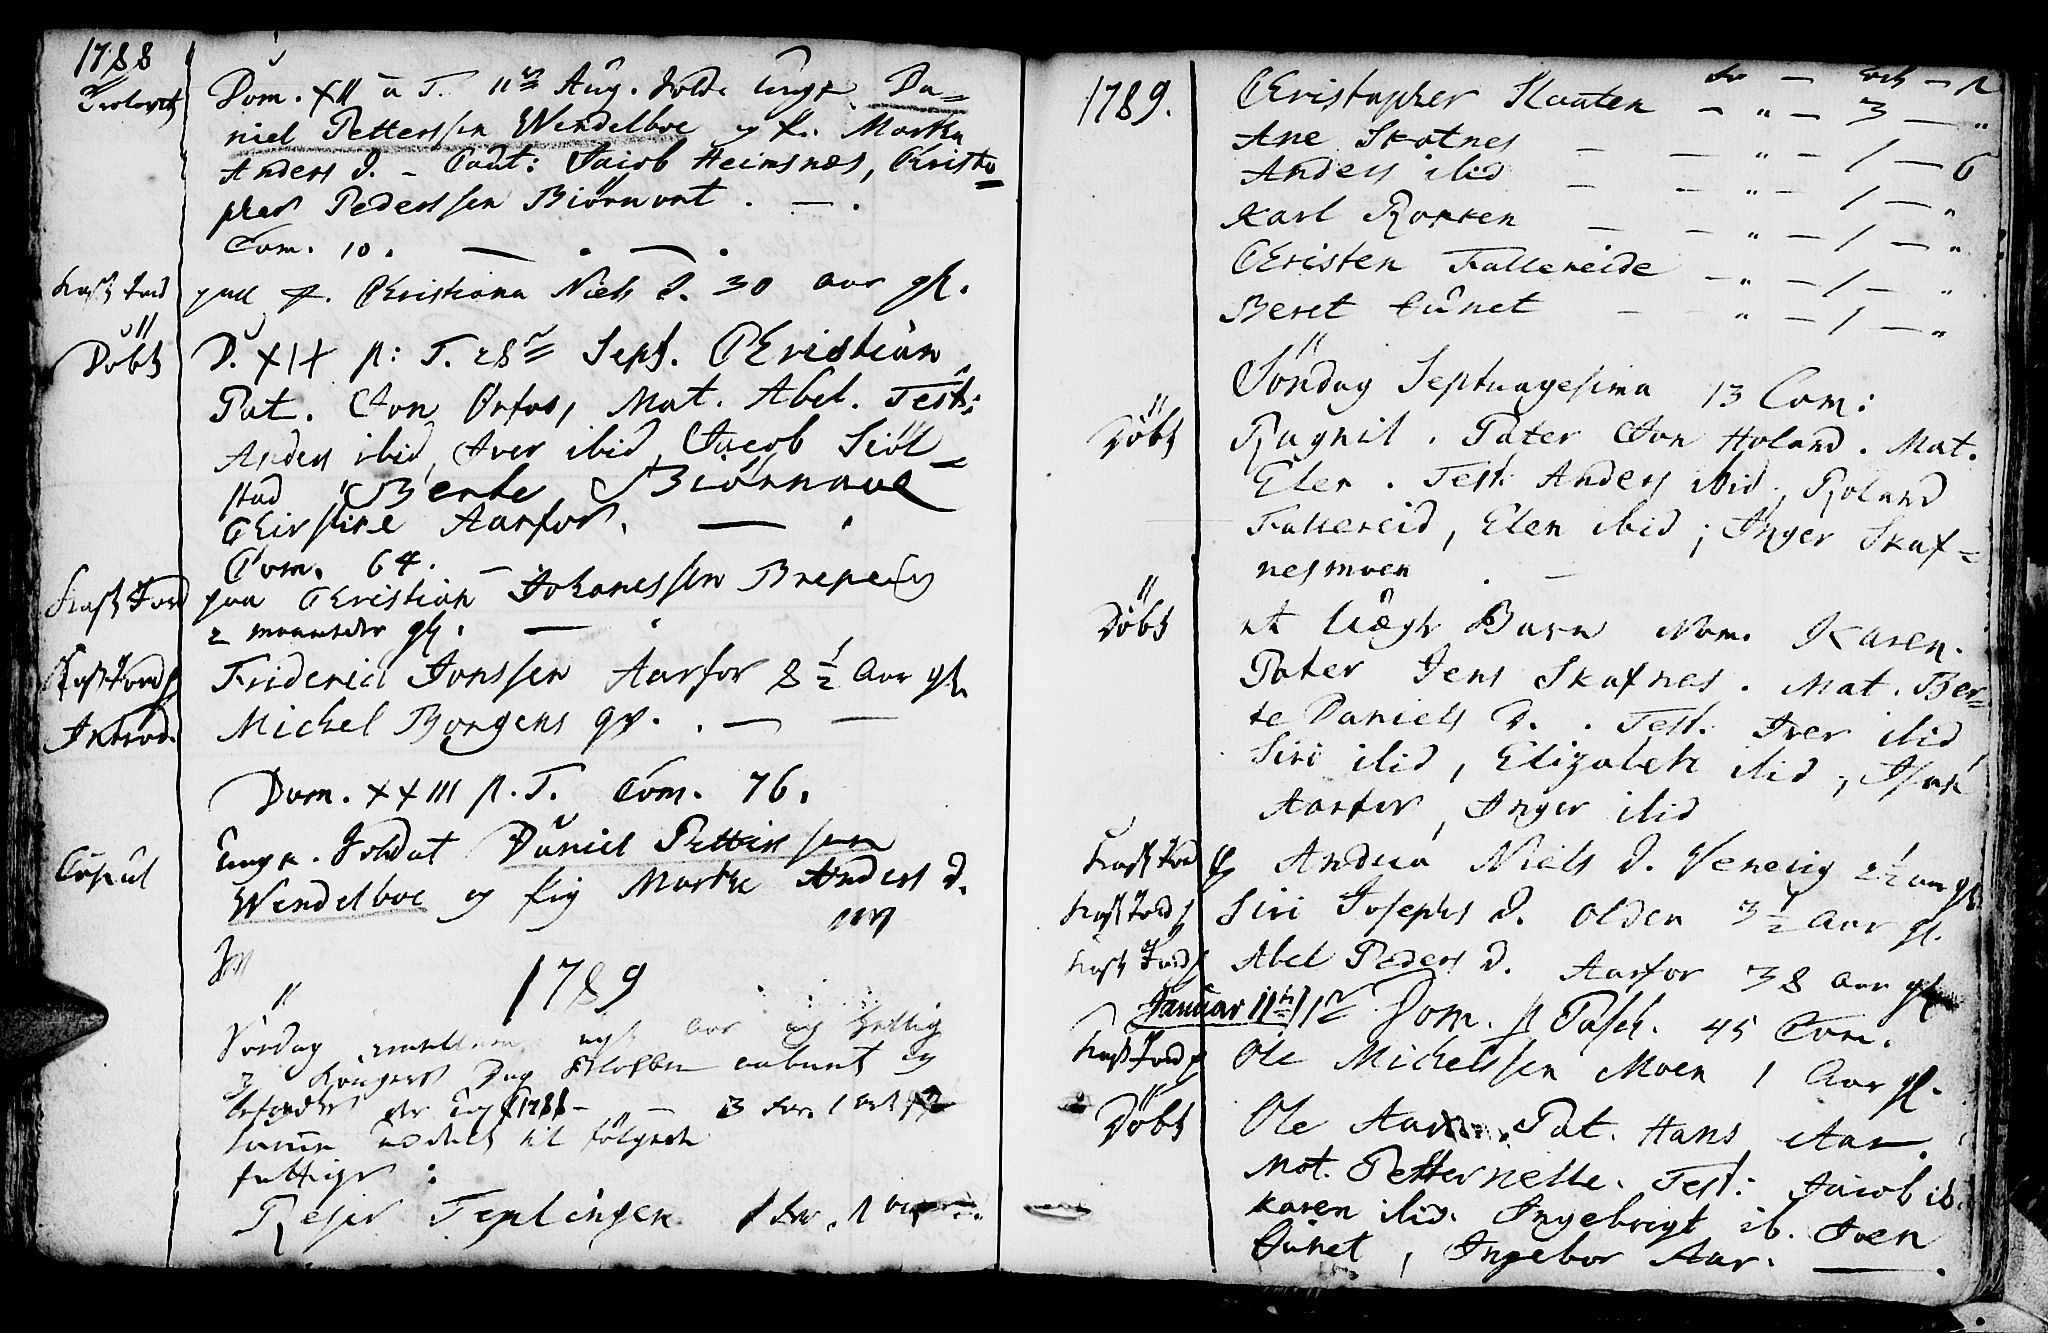 1788
Trolovet
Dom. XII a T. 11te Aug. Sold. Ungk. Da=
niel Petterssen Wendelboe og p. Martha
Anders d. - Caut: Jacob Heimsnes, Christo=
pher Pederssen Biörnvont . — .
Com. 10. — . — .
Kast Jord paa p. Christiana Niels d. 30 aar gl.
Döbt D. XIX p: T. 28de Sept. Christian
Pat. Jon Ørfos, Mat. Abel. Test:
Anders ibid, Iver ibid, Jacob Siöl=
stad Berte Biörnavl
Chirstine Aarfor. — .
Com. 64. —
Kast Jord paa Christian Johanessen
2 maaneder gl. — .
Kast Jord p Friderich Jonssen Aarfor 8 ½ Aar gl.
Introd. Michel Borgens qv. . — —
Dom. XXIII p. T. Com. 76.
Copul Ungk. Soldat Daniel Petterssen
Wendelboe og pig Marthe Anders d.
1789
Söndag imellem nyt Aar og Hellig
3 Kongers Dag Blokken aabnet og
befandtes
1788 — — 3
samme uddelt til fölgende
fattige :
Teplingen
1789.
Christopher Slaaten — " — 3 — "
Ane Skatnes — — " — 1 — 6
Anders ibid — — " — 1 — "
Karl — — " — 1 — "
Christen Fallereide — " — 1 — "
Beret Tunet — — " — 1 — "
Söndag Septuagesima 13 Com:
Döbt Ragnil. Pater Jon Holand. Mat.
Elen. Test: Anders ibid, Roland
Fallereid, Elen ibid; Inger Skaf=
nesmoen . —
Döbt et Uægte Barn Nom. Karen.
Pater Jens Skafnes. Mat. Ber=
te Daniels d. . Test. Iver ibid,
Siri ibid, Elizabeth ibid, Isak
Aarfor, Inger ibid
Kast Jord p Andrea Niels d. 2½ aar gl.
Kast Jord p Siri Josephs d. Olden 3½ Aar gl.
Kast Jord p Abel Peders d. Aarfor 38 Aar gl.
Januar 11te Dom. p Pasch. 45 Com.
Kast Jord p Ole Michelssen Moen 1 Aar gl.
Döbt Ole Pat. Hans Aar.
Mat. Petternelle. Test: Jacob ib.
Karen ibid. Ingebrigt ib. Iven
Tunet, Ingebor Aar. — .